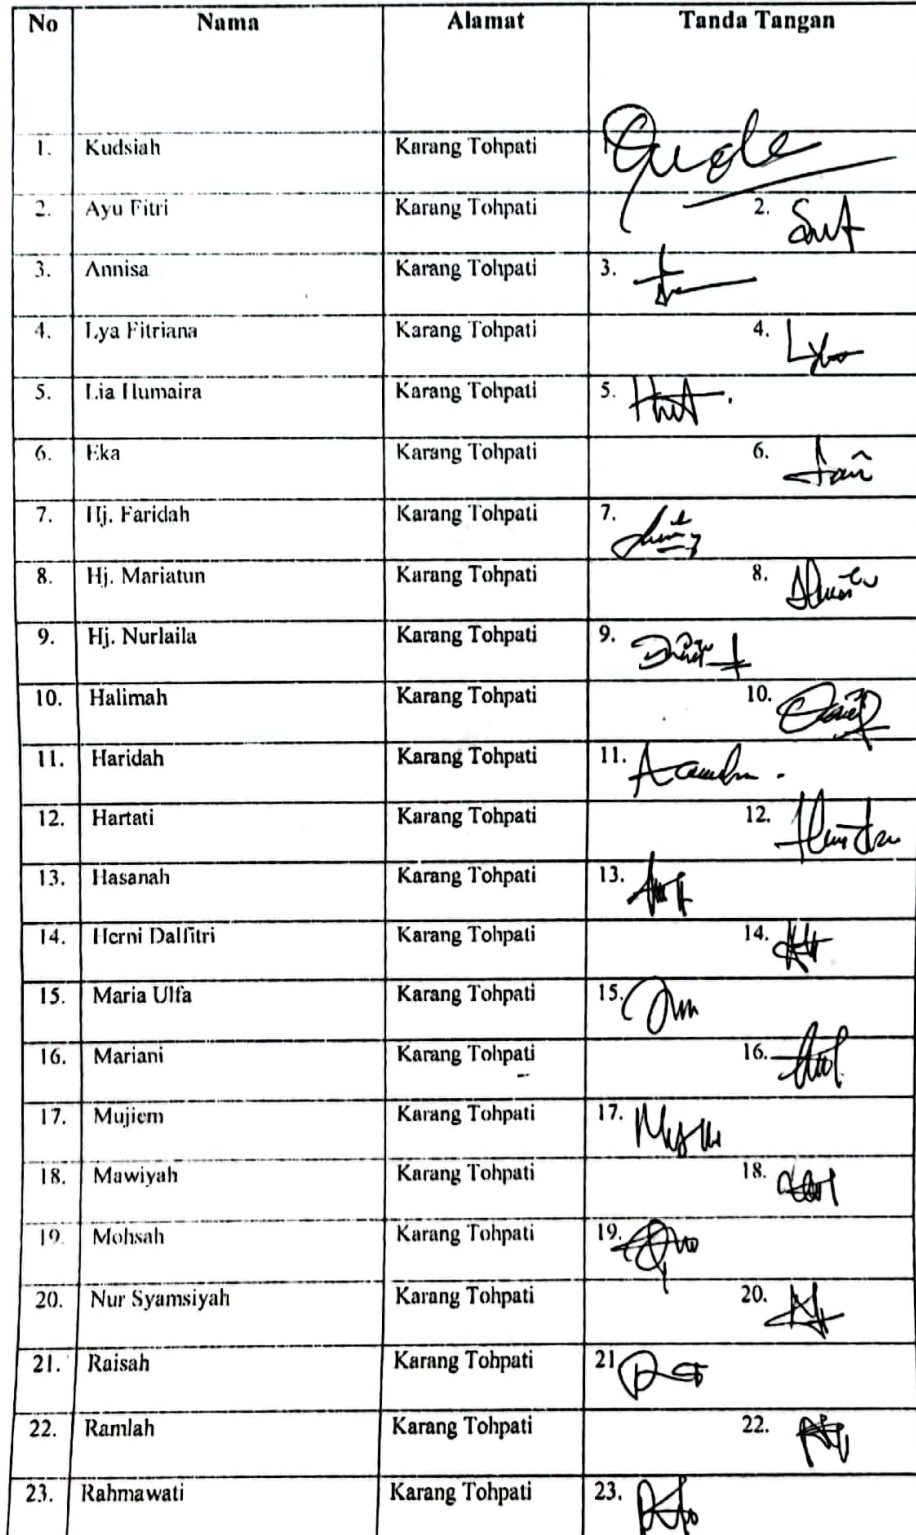 No Nama Alamat Tanda Tangan
1. Kudsiah Karang Tohpati
2. Ayu Fitri Karang Tohpati 2.
3. Annisa Karang Tohpati 3.
4. Lya Fitriana Karang Tohpati 4.
5. Lia Humaira Karang Tohpati 5.
6. Eka Karang Tohpati 6.
7. Hj. Faridah Karang Tohpati 7.
8. Hj. Mariatun Karang Tohpati 8.
9. Hj. Nurlaila Karang Tohpati 9.
10. Halimah Karang Tohpati 10.
11. Haridah Karang Tohpati 11.
12. Hartati Karang Tohpati 12.
13. Hasanah Karang Tohpati 13.
14. Herni Dalfitri Karang Tohpati 14.
15. Maria Ulfa Karang Tohpati 15.
16. Mariani Karang Tohpati 16.
17. Mujiem Karang Tohpati 17.
18. Mawiyah Karang Tohpati 18.
19. Mohsah Karang Tohpati 19.
20. Nur Syamsiyah Karang Tohpati 20.
21. Raisah Karang Tohpati 21
22. Ramlah Karang Tohpati 22.
23. Rahmawati Karang Tohpati 23.